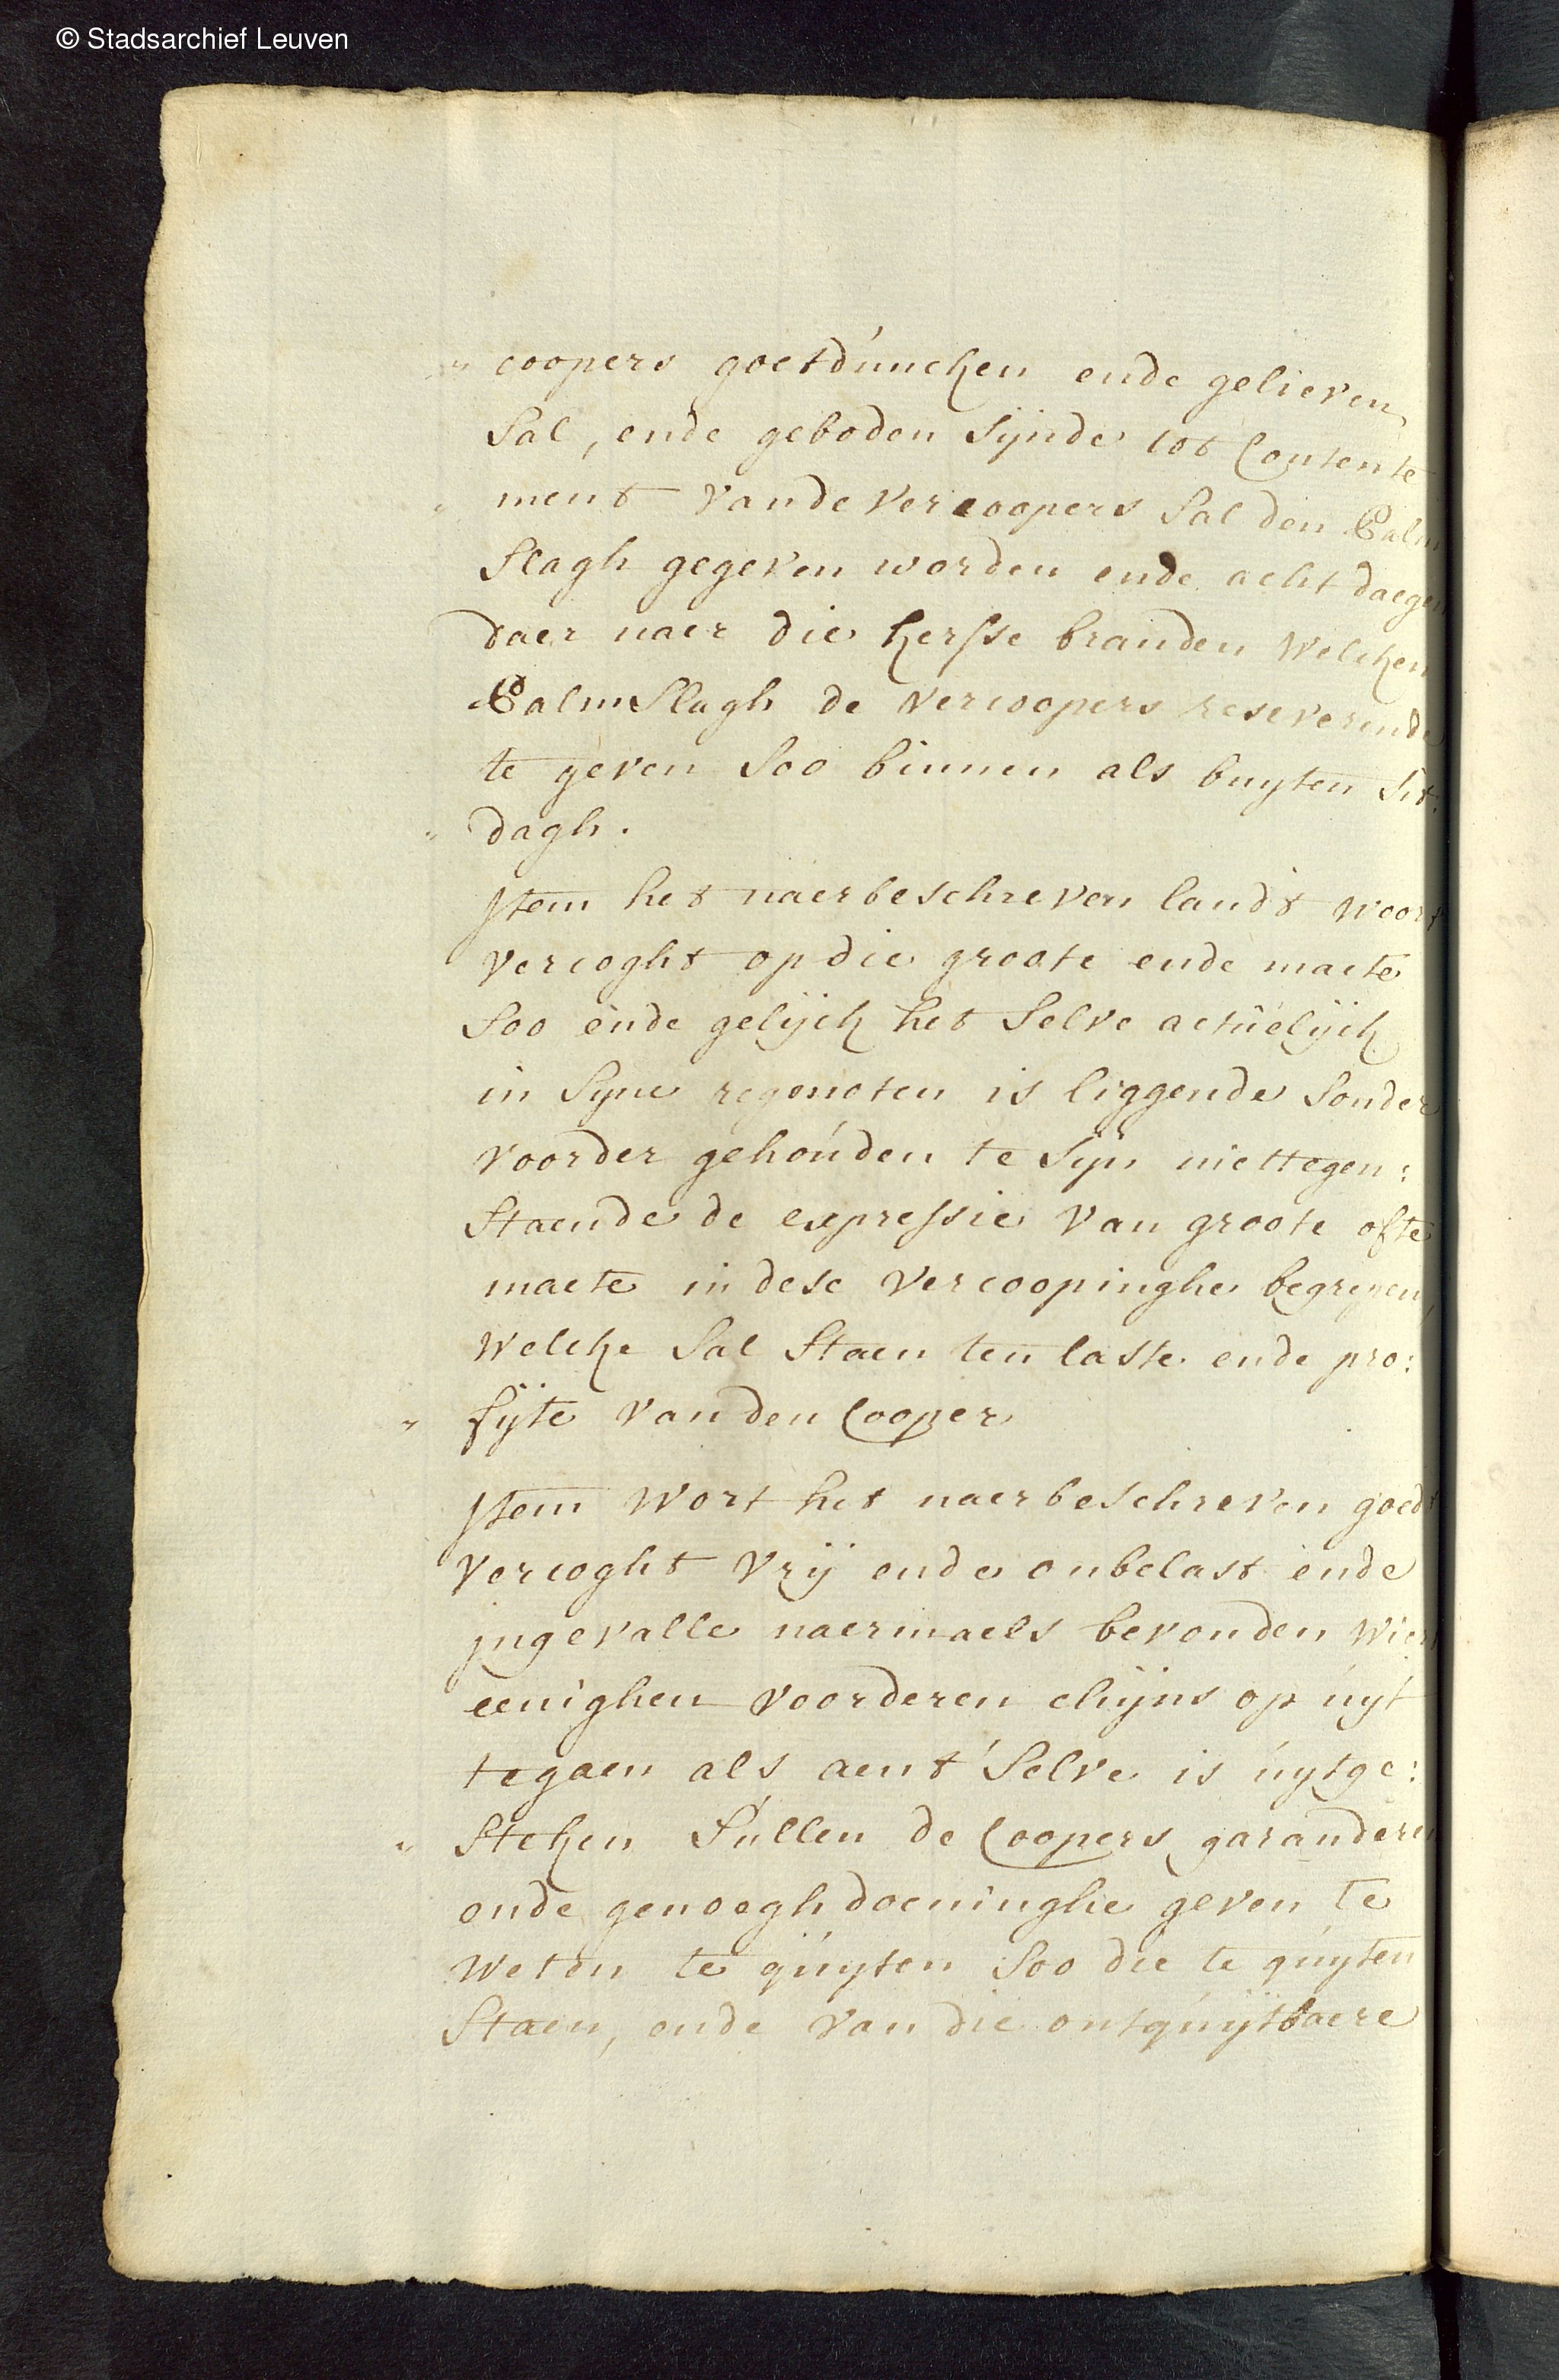 © Stadsarchief Leuven
coopers goetduncken ende gelieven
Sal, ende geboden Sijnde tot Contente
ment vande vercoopers Sal den Palm
Slagh gegeven worden ende acht daegen
daer naer die kersse branden welcken
PalmSlagh de vercoopers reseverende
te geven Soo binnen als buyten Sit:
dagh.
Jtem het naerbeschreven landt woort
vercoght op die groote ende maete
Soo ende gelijck het Selve actuelijck
in Syne regenoten is liggende Sonder
voorder gehouden te Sijn niettegen:
Staende de expressie van groote ofte
maete in dese vercoopinghe begrepen,
welcke Sal Staen ten laste ende pro:
fijte van den Cooper
Jtem wort het naerbeschreven goedt
vercoght vrij ende onbelast ende
jngevalle naermaels bevonden wiert
eenighen voorderen chijns op uyt
tegaen als aent' Selve is uytge:
Steken Sullen de Coopers garanderen
ende genoeghdoeninghe geven te
weten te quyten Soo die te quyten
Staen, ende van die ontquijtbaere